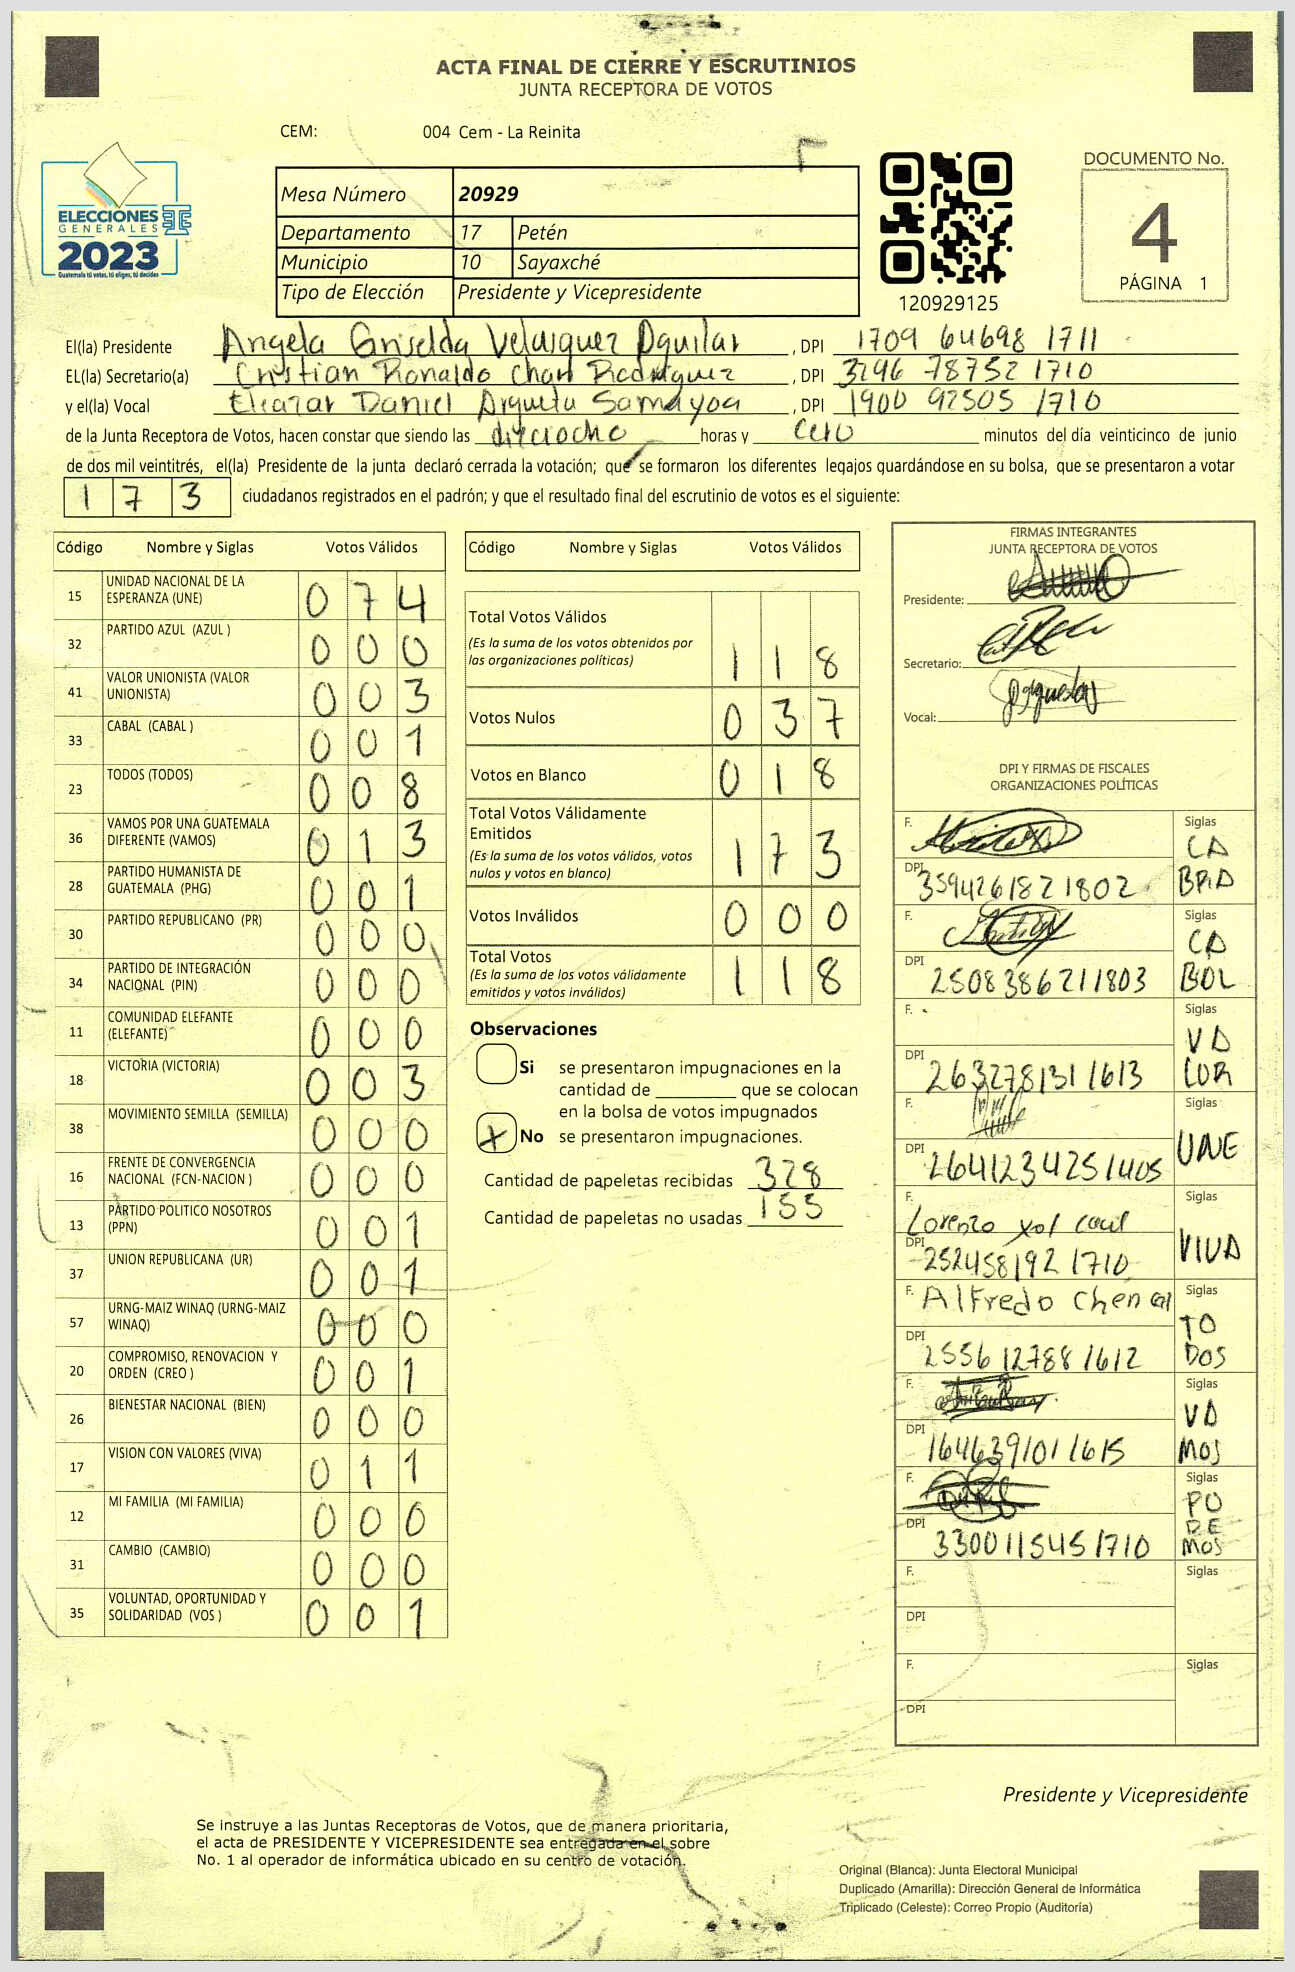 ACTA FINAL DE CIERRE Y ESCRUTINIOS
JUNTA RECEPTORA DE VOTOS
CEM: 004 Cem - La Reinita
ELECCIONES
GENERALES
2023
Guatemala tú votas, tú eliges, tú decides
Mesa Número 20929
Departamento 17 Petén
Municipio 10 Sayaxché
Tipo de Elección Presidente y Vicepresidente
120929125
DOCUMENTO No.
4
PÁGINA 1
El(la) Presidente Angela Griselda Velasquez Aguilar, DPI 1709 64698 1711
EL(la) Secretario(a) Cristian Ronaldo Chan Rodriguez, DPI 3296 78752 1710
y el(la) Vocal Eleazar Daniel Argueta Samayoa, DPI 1900 92505 1710
de la Junta Receptora de Votos, hacen constar que siendo las dieciocho horas y cero minutos del día veinticinco de junio
de dos mil veintitrés, el(la) Presidente de la junta declaró cerrada la votación; que se formaron los diferentes legajos guardándose en su bolsa, que se presentaron a votar
173 ciudadanos registrados en el padrón; y que el resultado final del escrutinio de votos es el siguiente:
Código Nombre y Siglas Votos Válidos
15 UNIDAD NACIONAL DE LA ESPERANZA (UNE) 074
32 PARTIDO AZUL (AZUL ) 000
41 VALOR UNIONISTA (VALOR UNIONISTA) 003
33 CABAL (CABAL ) 001
23 TODOS (TODOS) 008
36 VAMOS POR UNA GUATEMALA DIFERENTE (VAMOS) 013
28 PARTIDO HUMANISTA DE GUATEMALA (PHG) 001
30 PARTIDO REPUBLICANO (PR) 000
34 PARTIDO DE INTEGRACIÓN NACIONAL (PIN) 000
11 COMUNIDAD ELEFANTE (ELEFANTE) 000
18 VICTORIA (VICTORIA) 003
38 MOVIMIENTO SEMILLA (SEMILLA) 000
16 FRENTE DE CONVERGENCIA NACIONAL (FCN-NACION ) 000
13 PARTIDO POLITICO NOSOTROS (PPN) 001
37 UNION REPUBLICANA (UR) 001
57 URNG-MAIZ WINAQ (URNG-MAIZ WINAQ) 000
20 COMPROMISO, RENOVACION Y ORDEN (CREO ) 001
26 BIENESTAR NACIONAL (BIEN) 000
17 VISION CON VALORES (VIVA) 011
12 MI FAMILIA (MI FAMILIA) 000
31 CAMBIO (CAMBIO) 000
35 VOLUNTAD, OPORTUNIDAD Y SOLIDARIDAD (VOS ) 001
Código Nombre y Siglas Votos Válidos
Total Votos Válidos 118
(Es la suma de los votos obtenidos por
las organizaciones políticas)
Votos Nulos 037
Votos en Blanco 018
Total Votos Válidamente
Emitidos 173
(Es la suma de los votos válidos, votos
nulos y votos en blanco)
Votos Inválidos 000
Total Votos 118
(Es la suma de los votos válidamente
emitidos y votos inválidos)
Observaciones
Si se presentaron impugnaciones en la
cantidad de ________ que se colocan
en la bolsa de votos impugnados
X No se presentaron impugnaciones.
Cantidad de papeletas recibidas 328
Cantidad de papeletas no usadas 155
FIRMAS INTEGRANTES
JUNTA RECEPTORA DE VOTOS
Presidente:
Secretario:
Vocal:
DPI Y FIRMAS DE FISCALES
ORGANIZACIONES POLÍTICAS
F. Siglas CA
DPI 3594261821802 BAL
F. Siglas CA
DPI 2508386211803 BOL
F. Siglas VA
DPI 2632781311613 LOR
F. Siglas
DPI 2641234251405 UNE
F. Lorenzo xol caal Siglas
DPI 2524581921710 VIVA
F. Alfredo Chen Siglas TO
DPI 2556127881612 DOS
F. Siglas VA
DPI 1646391011615 MOS
F. Siglas PO DE
DPI 3300115451710 MOS
F. Siglas
DPI
F. Siglas
DPI
Presidente y Vicepresidente
Se instruye a las Juntas Receptoras de Votos, que de manera prioritaria,
el acta de PRESIDENTE Y VICEPRESIDENTE sea entregada en el sobre
No. 1 al operador de informática ubicado en su centro de votación.
Original (Blanca): Junta Electoral Municipal
Duplicado (Amarilla): Dirección General de Informática
Triplicado (Celeste): Correo Propio (Auditoría)